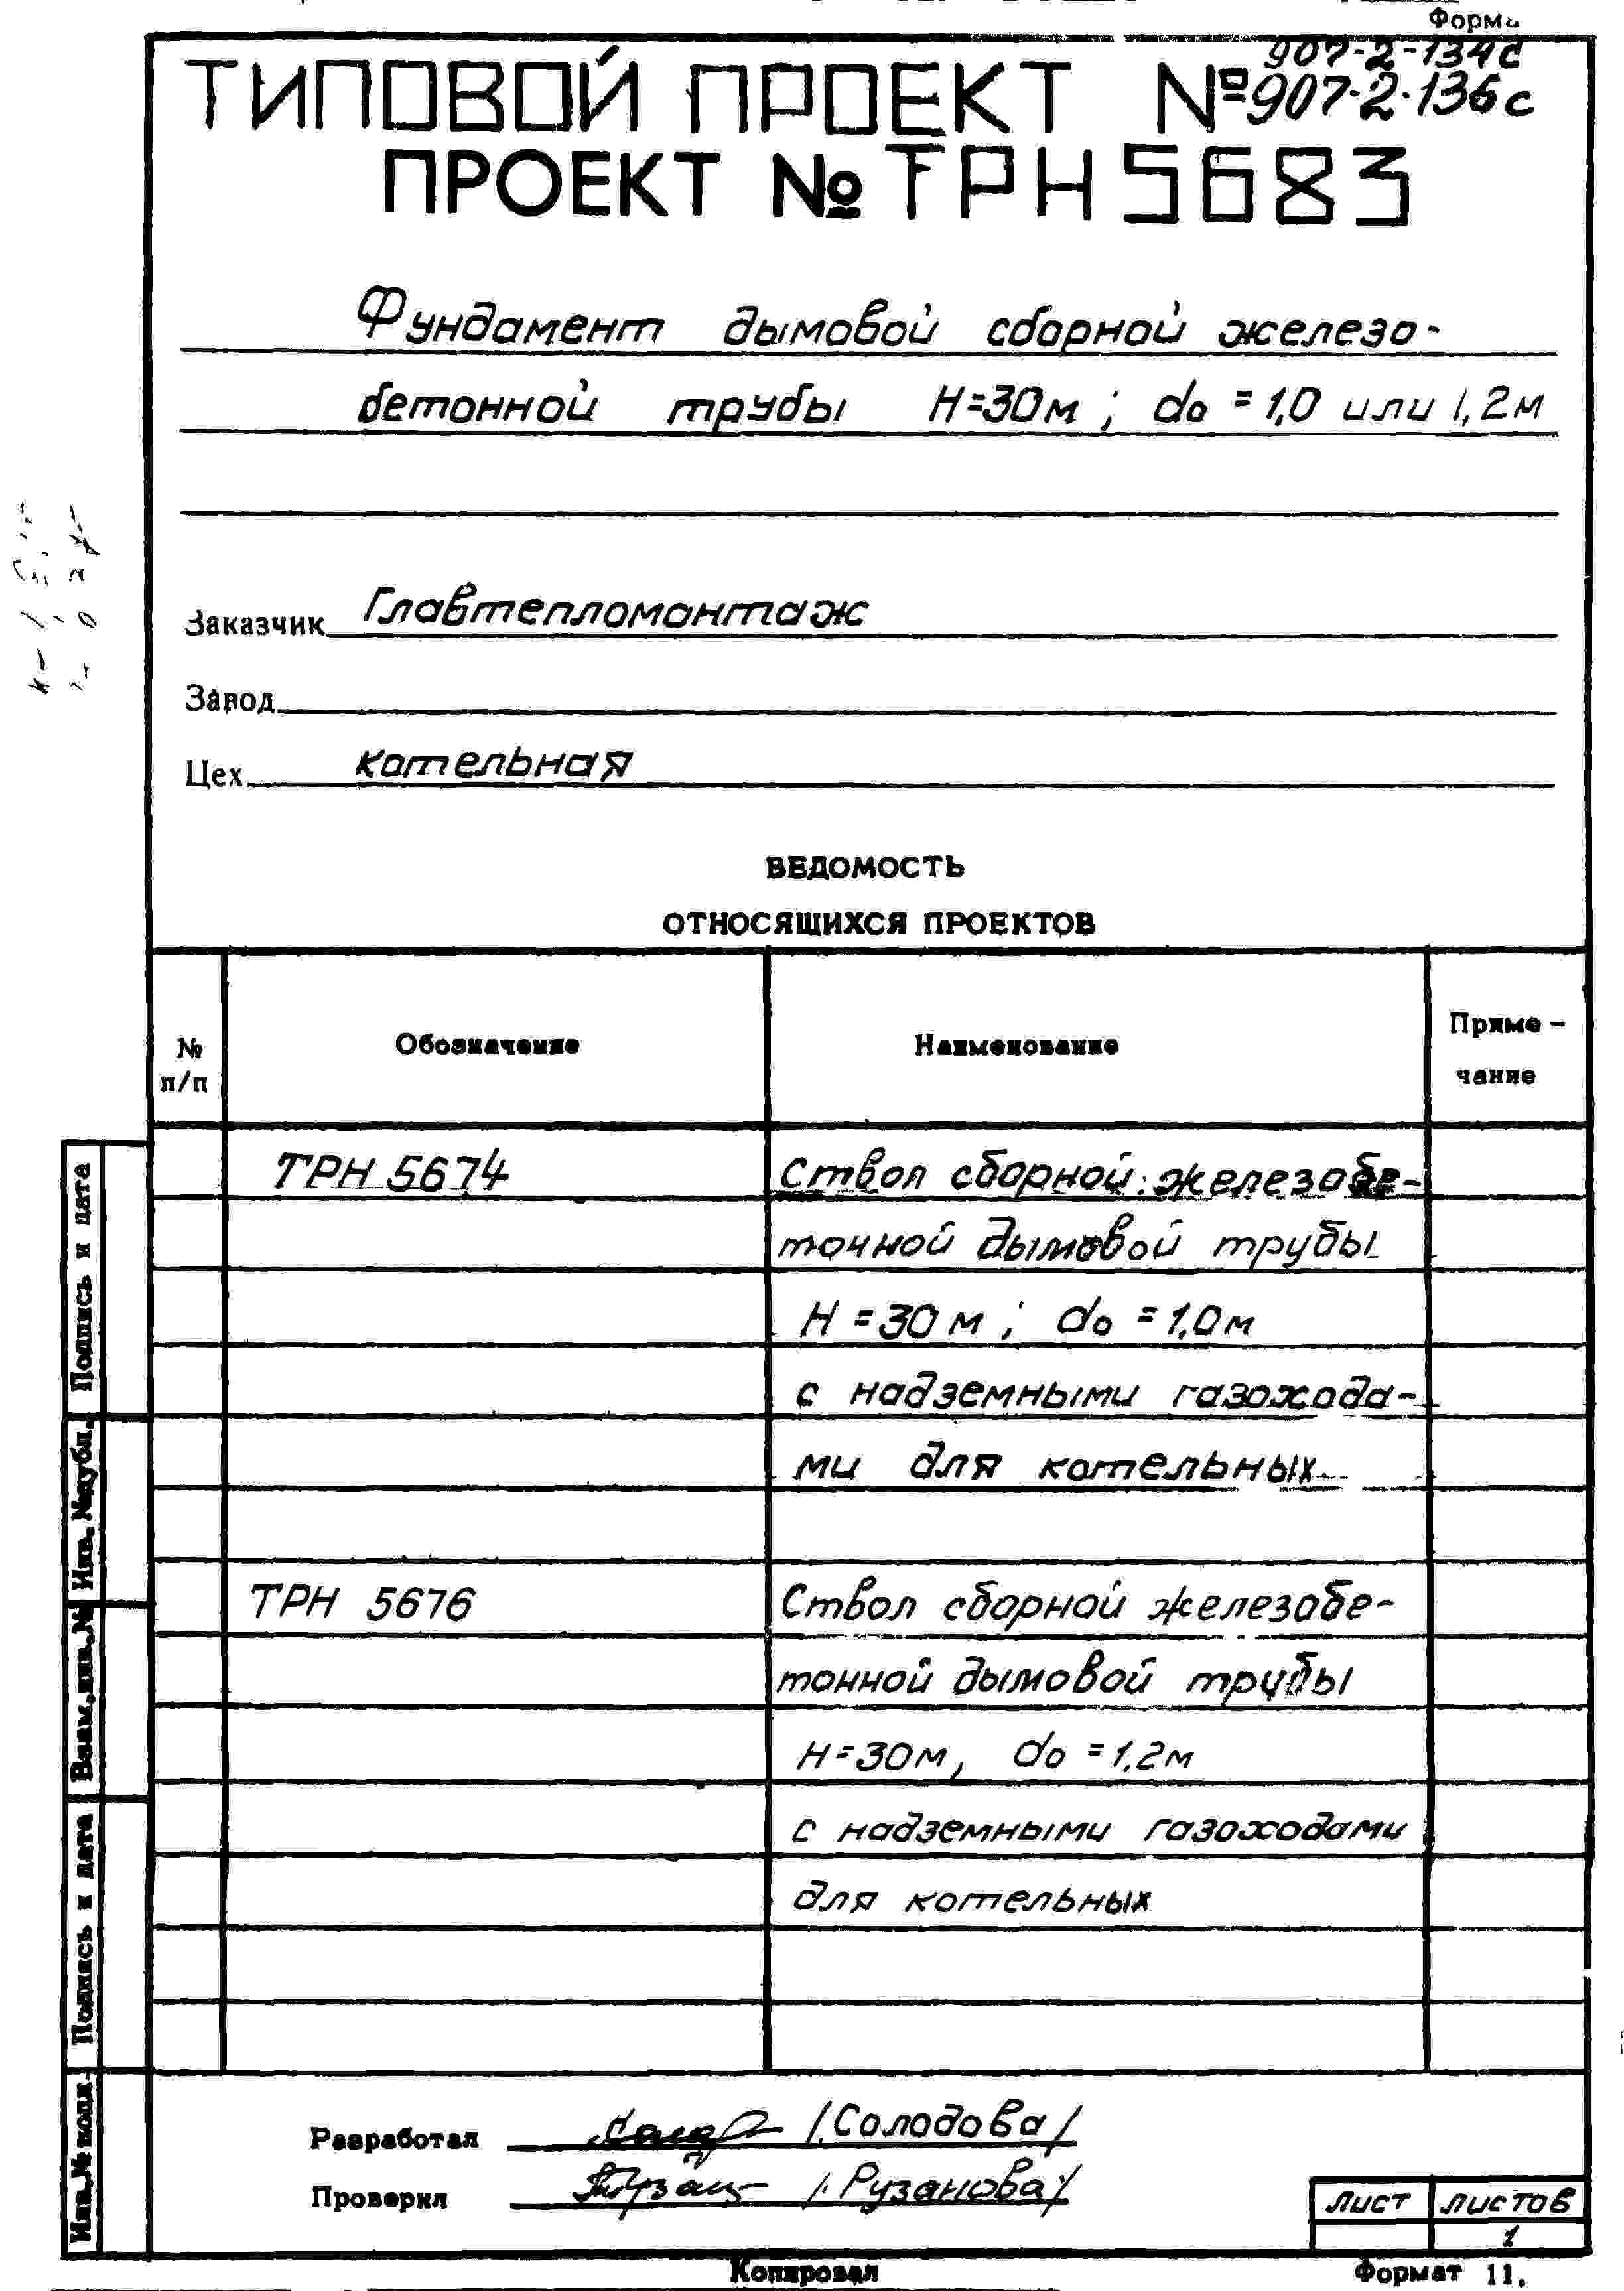 Форма
907-2-134с
ТИПОВОЙ ПРОЕКТ №907-2-136с
ПРОЕКТ № ТРН 5683
Фундамент дымовой сборной железо-
бетонной трубы Н=30м; do = 1,0 или 1,2м
Заказчик Главтепломонтаж
Завод
Цех котельная
ВЕДОМОСТЬ
ОТНОСЯЩИХСЯ ПРОЕКТОВ
№ п/п
Обозначение
Наименование
Приме-
чание
ТРН 5674 Ствол сборной железобе-
тонной дымовой трубы
Н = 30 м; do = 1,0м
с надземными газохода-
ми для котельных
ТРН 5676 Ствол сборной железобе-
тонной дымовой трубы
Н=30м, do = 1,2м
с надземными газоходами
для котельных
Подпись и дата
Инв. № дубл.
Взам. инв. №
Подпись и дата
Инв. № подл.
Разработал /Солодова/
Проверил /Рузанова/
лист листов
1
Копировал Формат 11.